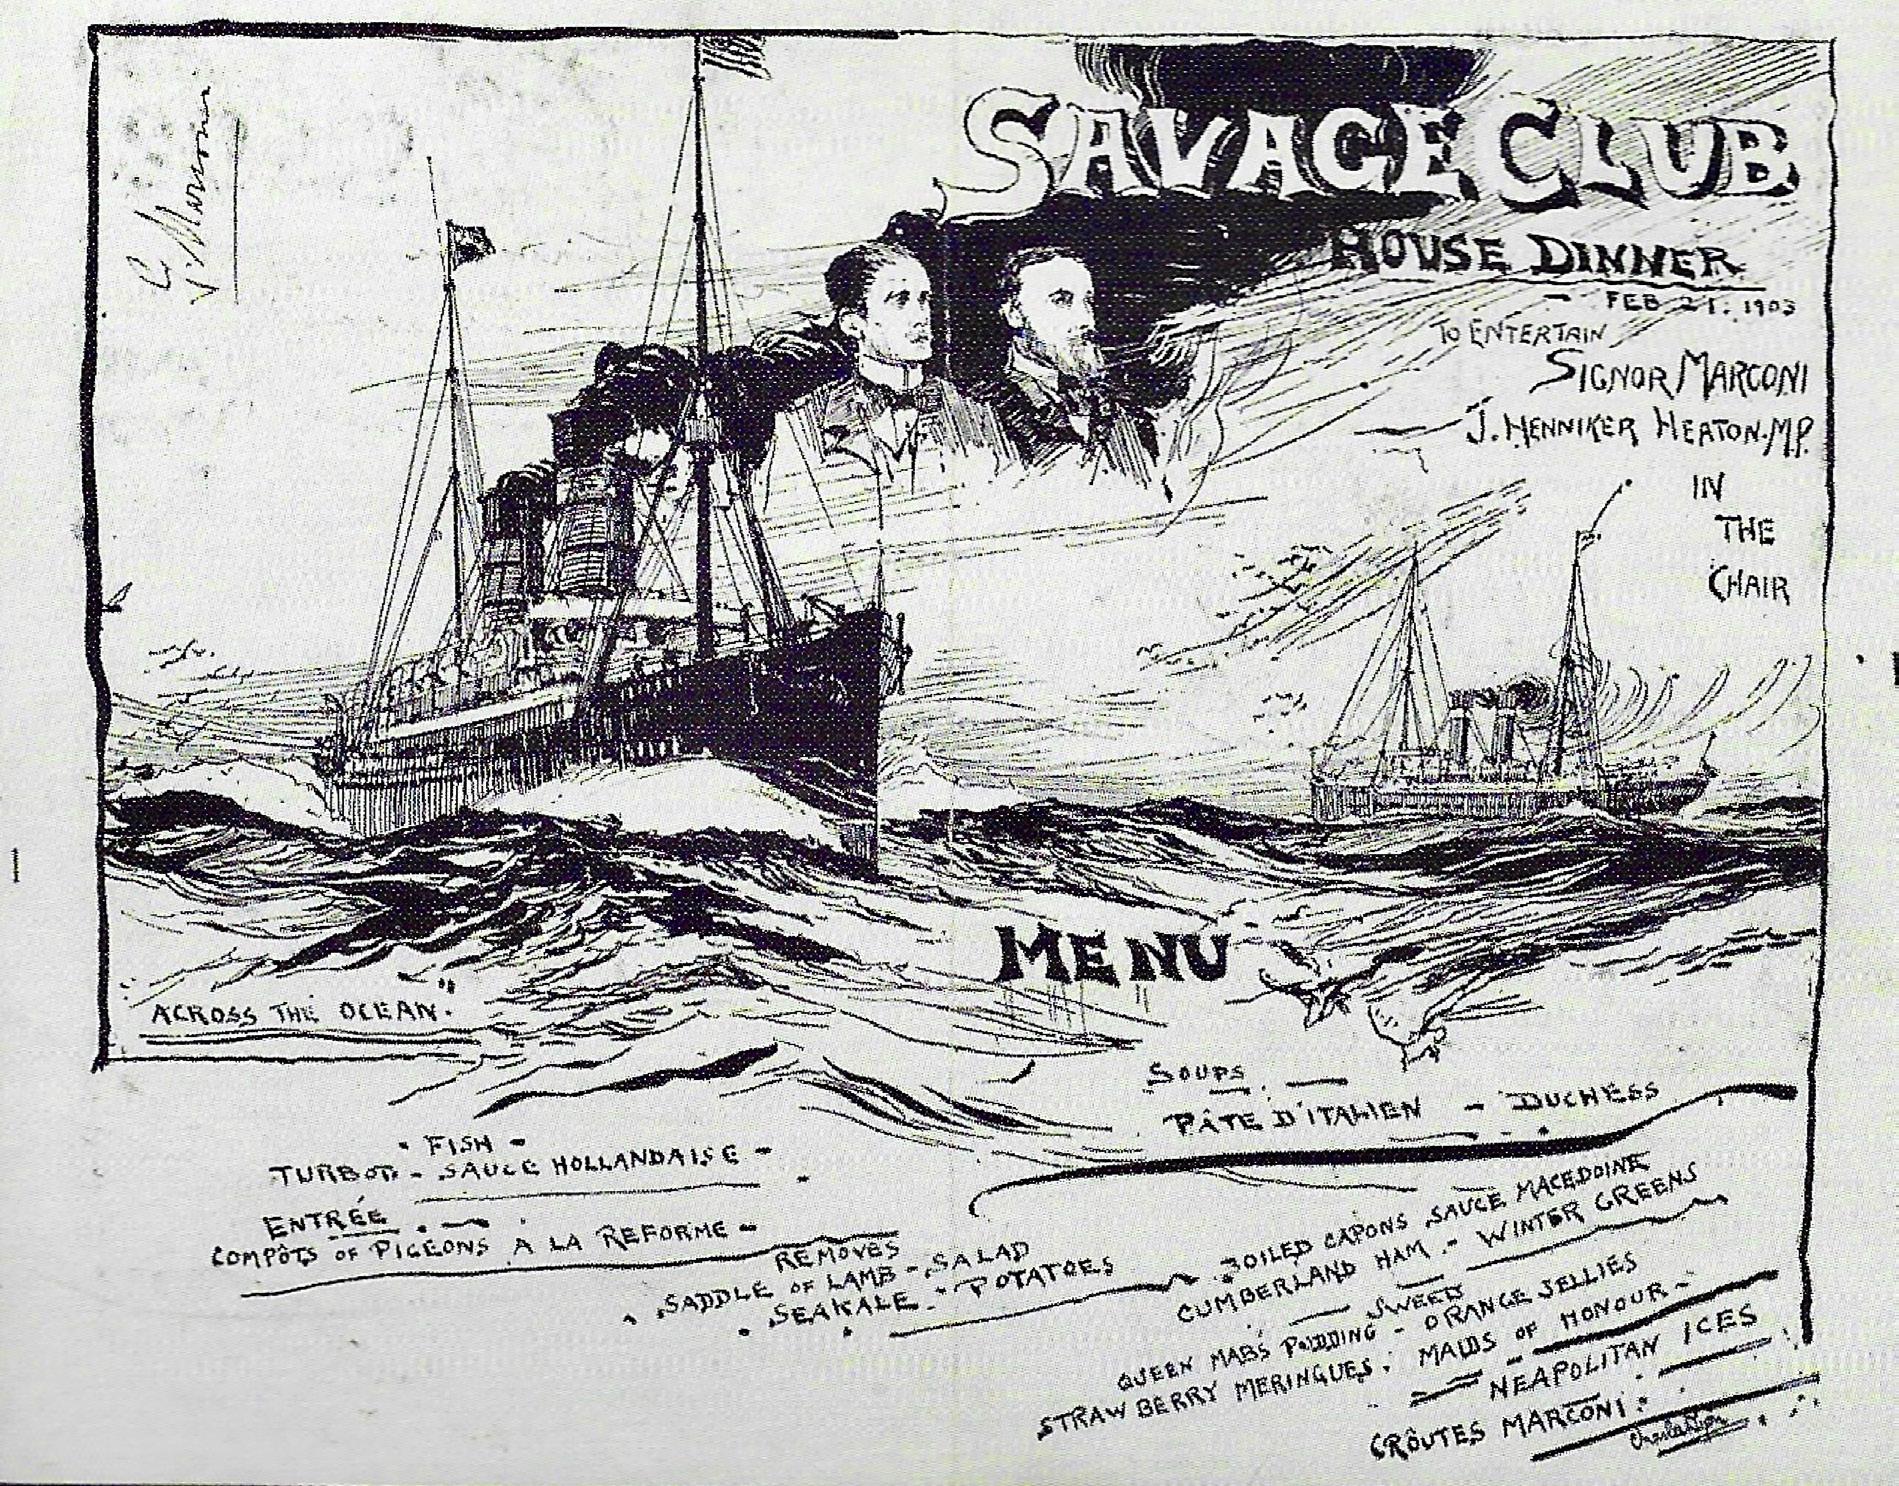 G Marconi
SAVAGE CLUB
HOUSE DINNER
FEB 21. 1903
TO ENTERTAIN
SIGNOR MARCONI
J. HENNIKER HEATON. M.P.
IN
THE
CHAIR
ACROSS THE OCEAN.
MENU
SOUPS
PÂTE D'ITALIEN - DUCHESS
FISH
TURBOT - SAUCE HOLLANDAISE -
ENTRÉE
COMPÔTS OF PIGEONS A LA REFORME -
REMOVES
SADDLE OF LAMB - SALAD
SEAKALE - POTATOES
BOILED CAPONS SAUCE MACEDOINE
CUMBERLAND HAM. - WINTER GREENS
SWEETS
QUEEN MABS PUDDING - ORANGE JELLIES
STRAWBERRY MERINGUES. MAIDS OF HONOUR -
NEAPOLITAN ICES
CRÔUTES MARCONI.